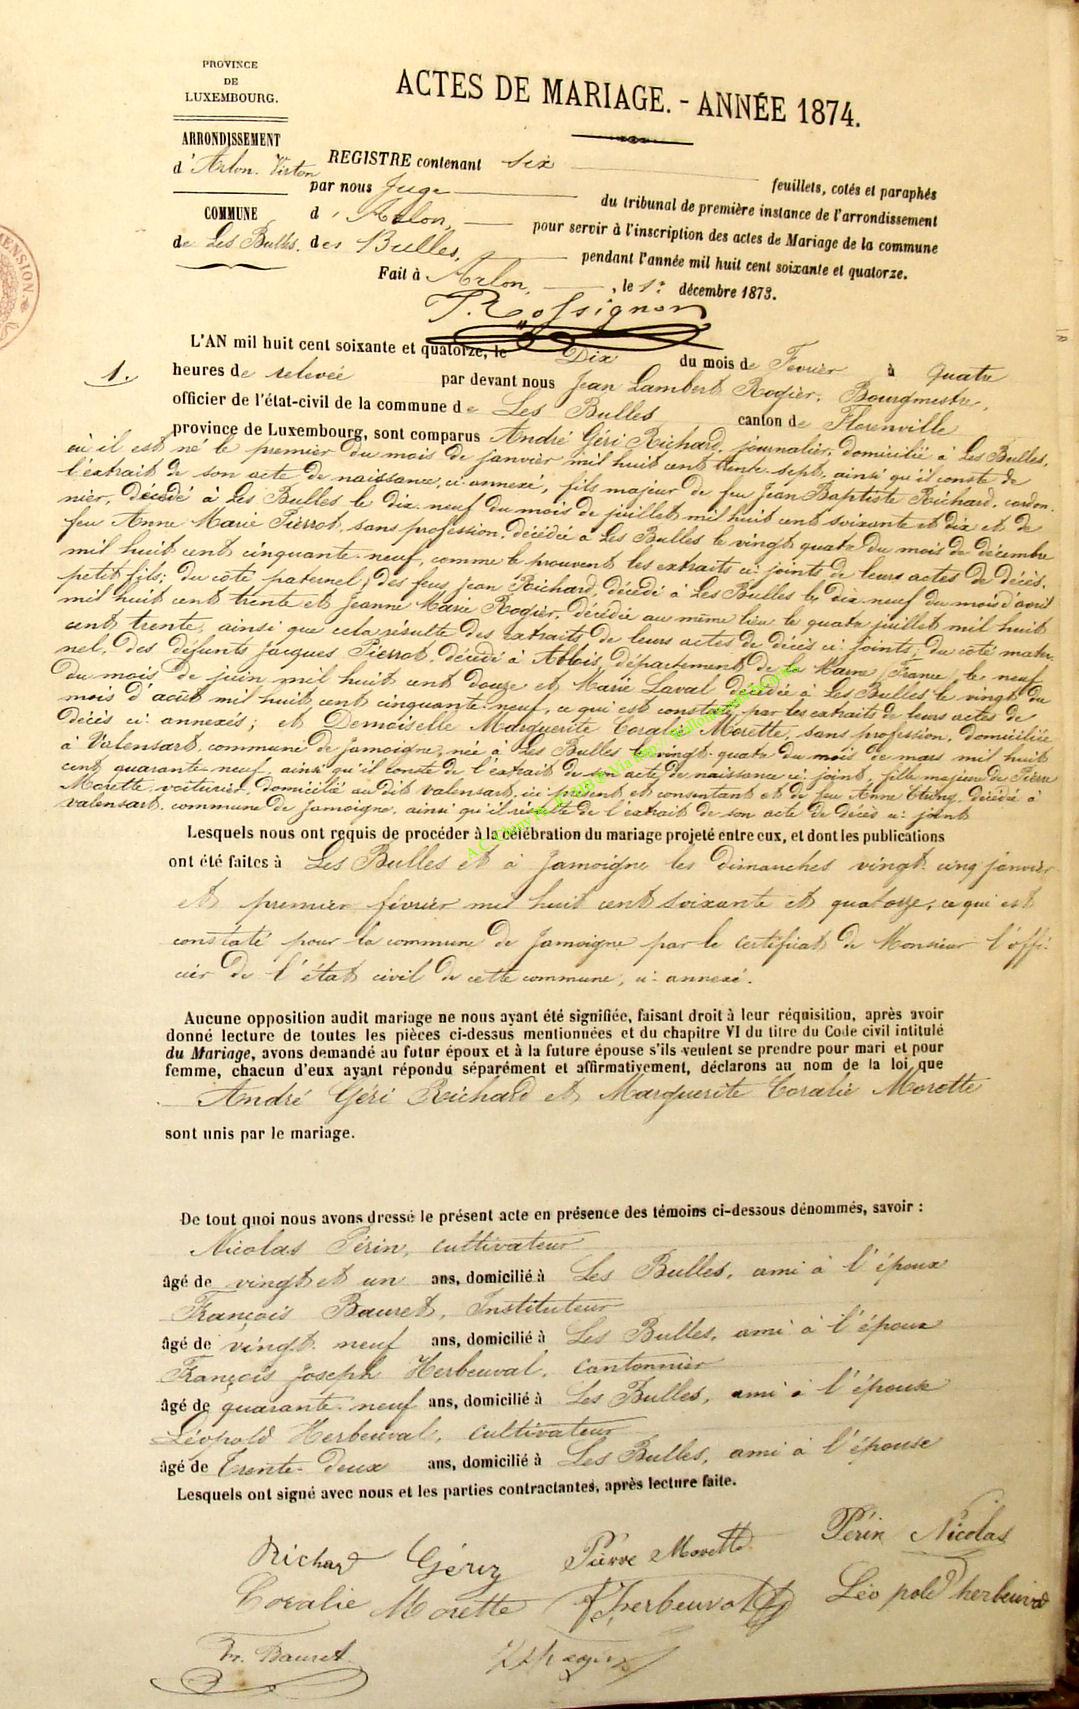 PROVINCE
DE
LUXEMBOURG.
ACTES DE MARIAGE. - ANNÉE 1874.
ARRONDISSEMENT
d'Arlon. Virton
COMMUNE
de Les Bulles.
REGISTRE contenant six feuillets, cotés et paraphés
par nous Juge du tribunal de première instance de l'arrondissement
d'Arlon, pour servir à l'inscription des actes de Mariage de la commune
des Bulles, pendant l'année mil huit cent soixante et quatorze.
Fait à Arlon, , le 1er décembre 1873.
T. Rossignon
1.
L'AN mil huit cent soixante et quatorze, le Dix du mois de Fevrier à quatre
heures de relevée par devant nous Jean Lambert Rogier, Bourgmestre,
officier de l'état-civil de la commune de Les Bulles canton de Florenville
province de Luxembourg, sont comparus André Géri Richard, journalier, domicilié à Les Bulles,
où il est né le premier du mois de janvier mil huit cent trente-sept, ainsi qu'il conste de
l'extrait de son acte de naissance, ci-annexé, fils majeur de feu Jean Baptiste Richard, cordon-
nier, décédé à Les Bulles le dix-neuf du mois de juillet mil huit cent soixante et dix et de
feu Anne Marie Pierrot, sans profession, décédée à Les Bulles le vingt quatre du mois de décembre
mil huit cent cinquante-neuf, comme le prouvent les extraits ci-joints de leurs actes de décès,
petit fils; du côté paternel, des feus Jean Richard, décédé à Les Bulles le dix-neuf du mois d'avril
mil huit cent trente et Jeanne Marie Rogier, décédée au même lieu le quatre juillet mil huit
cent trente, ainsi que cela résulte des extraits de leurs actes de décès ci-joints; du côté mater-
nel, des défunts Jacques Pierrot, décédé à Ablois, département de la Marne (France, le neuf
du mois de juin mil huit cent douze et Marie Laval décédée à Les Bulles le vingt du
mois d'août mil huit cent cinquante-neuf, ce qui est constaté par les extraits de leurs actes de
décès ci-annexés; et Demoiselle Marguerite Coralie Morette, sans profession, domiciliée
à Valensart, commune de Jamoigne, née à Les Bulles le vingt quatre du mois de mars mil huit
cent quarante-neuf, ainsi qu'il conste de l'extrait de son acte de naissance ci-joint, fille majeure de Pierre
Morette, voiturier, domicilié au dit Valensart, ici présent et consentant et de feu Anne décédée à
Valensart, commune de Jamoigne, ainsi qu'il résulte de l'extrait de son acte de décès ci-joint
Lesquels nous ont requis de procéder à la célébration du mariage projeté entre eux, et dont les publications
ont été faites à Les Bulles et à Jamoigne les dimanches vingt-cinq janvier
et premier février mil huit cent soixante et quatorze, ce qui est
constaté pour la commune de Jamoigne par le certificat de Monsieur l'offi-
cier de l'état civil de cette commune, ci-annexé.
Aucune opposition audit mariage ne nous ayant été signifiée, faisant droit à leur réquisition, après avoir
donné lecture de toutes les pièces ci-dessus mentionnées et du chapitre VI du titre du Code civil intitulé
du Mariage, avons demandé au futur époux et à la future épouse s'ils veulent se prendre pour mari et pour
femme, chacun d'eux ayant répondu séparément et affirmativement, déclarons au nom de la loi que
André Géri Richard et Marguerite Coralie Morette
sont unis par le mariage.
De tout quoi nous avons dressé le présent acte en présence des témoins ci-dessous dénommés, savoir :
Nicolas Périn, cultivateur
âgé de vingt et un ans, domicilié à Les Bulles, ami à l'époux
François Bauret, Instituteur
âgé de vingt-neuf ans, domicilié à Les Bulles, ami à l'époux
François Joseph Herbeuval, cantonnier
âgé de quarante-neuf ans, domicilié à Les Bulles, ami à l'époux
Léopold Herbeuval, cultivateur
âgé de trente-deux ans, domicilié à Les Bulles, ami à l'épouse
Lesquels ont signé avec nous et les parties contractantes, après lecture faite.
Richard Géry Pierre Morette Périn Nicolas
Coralie Morette FJherbeuval Léopold herbeuval
Fr. Bauret